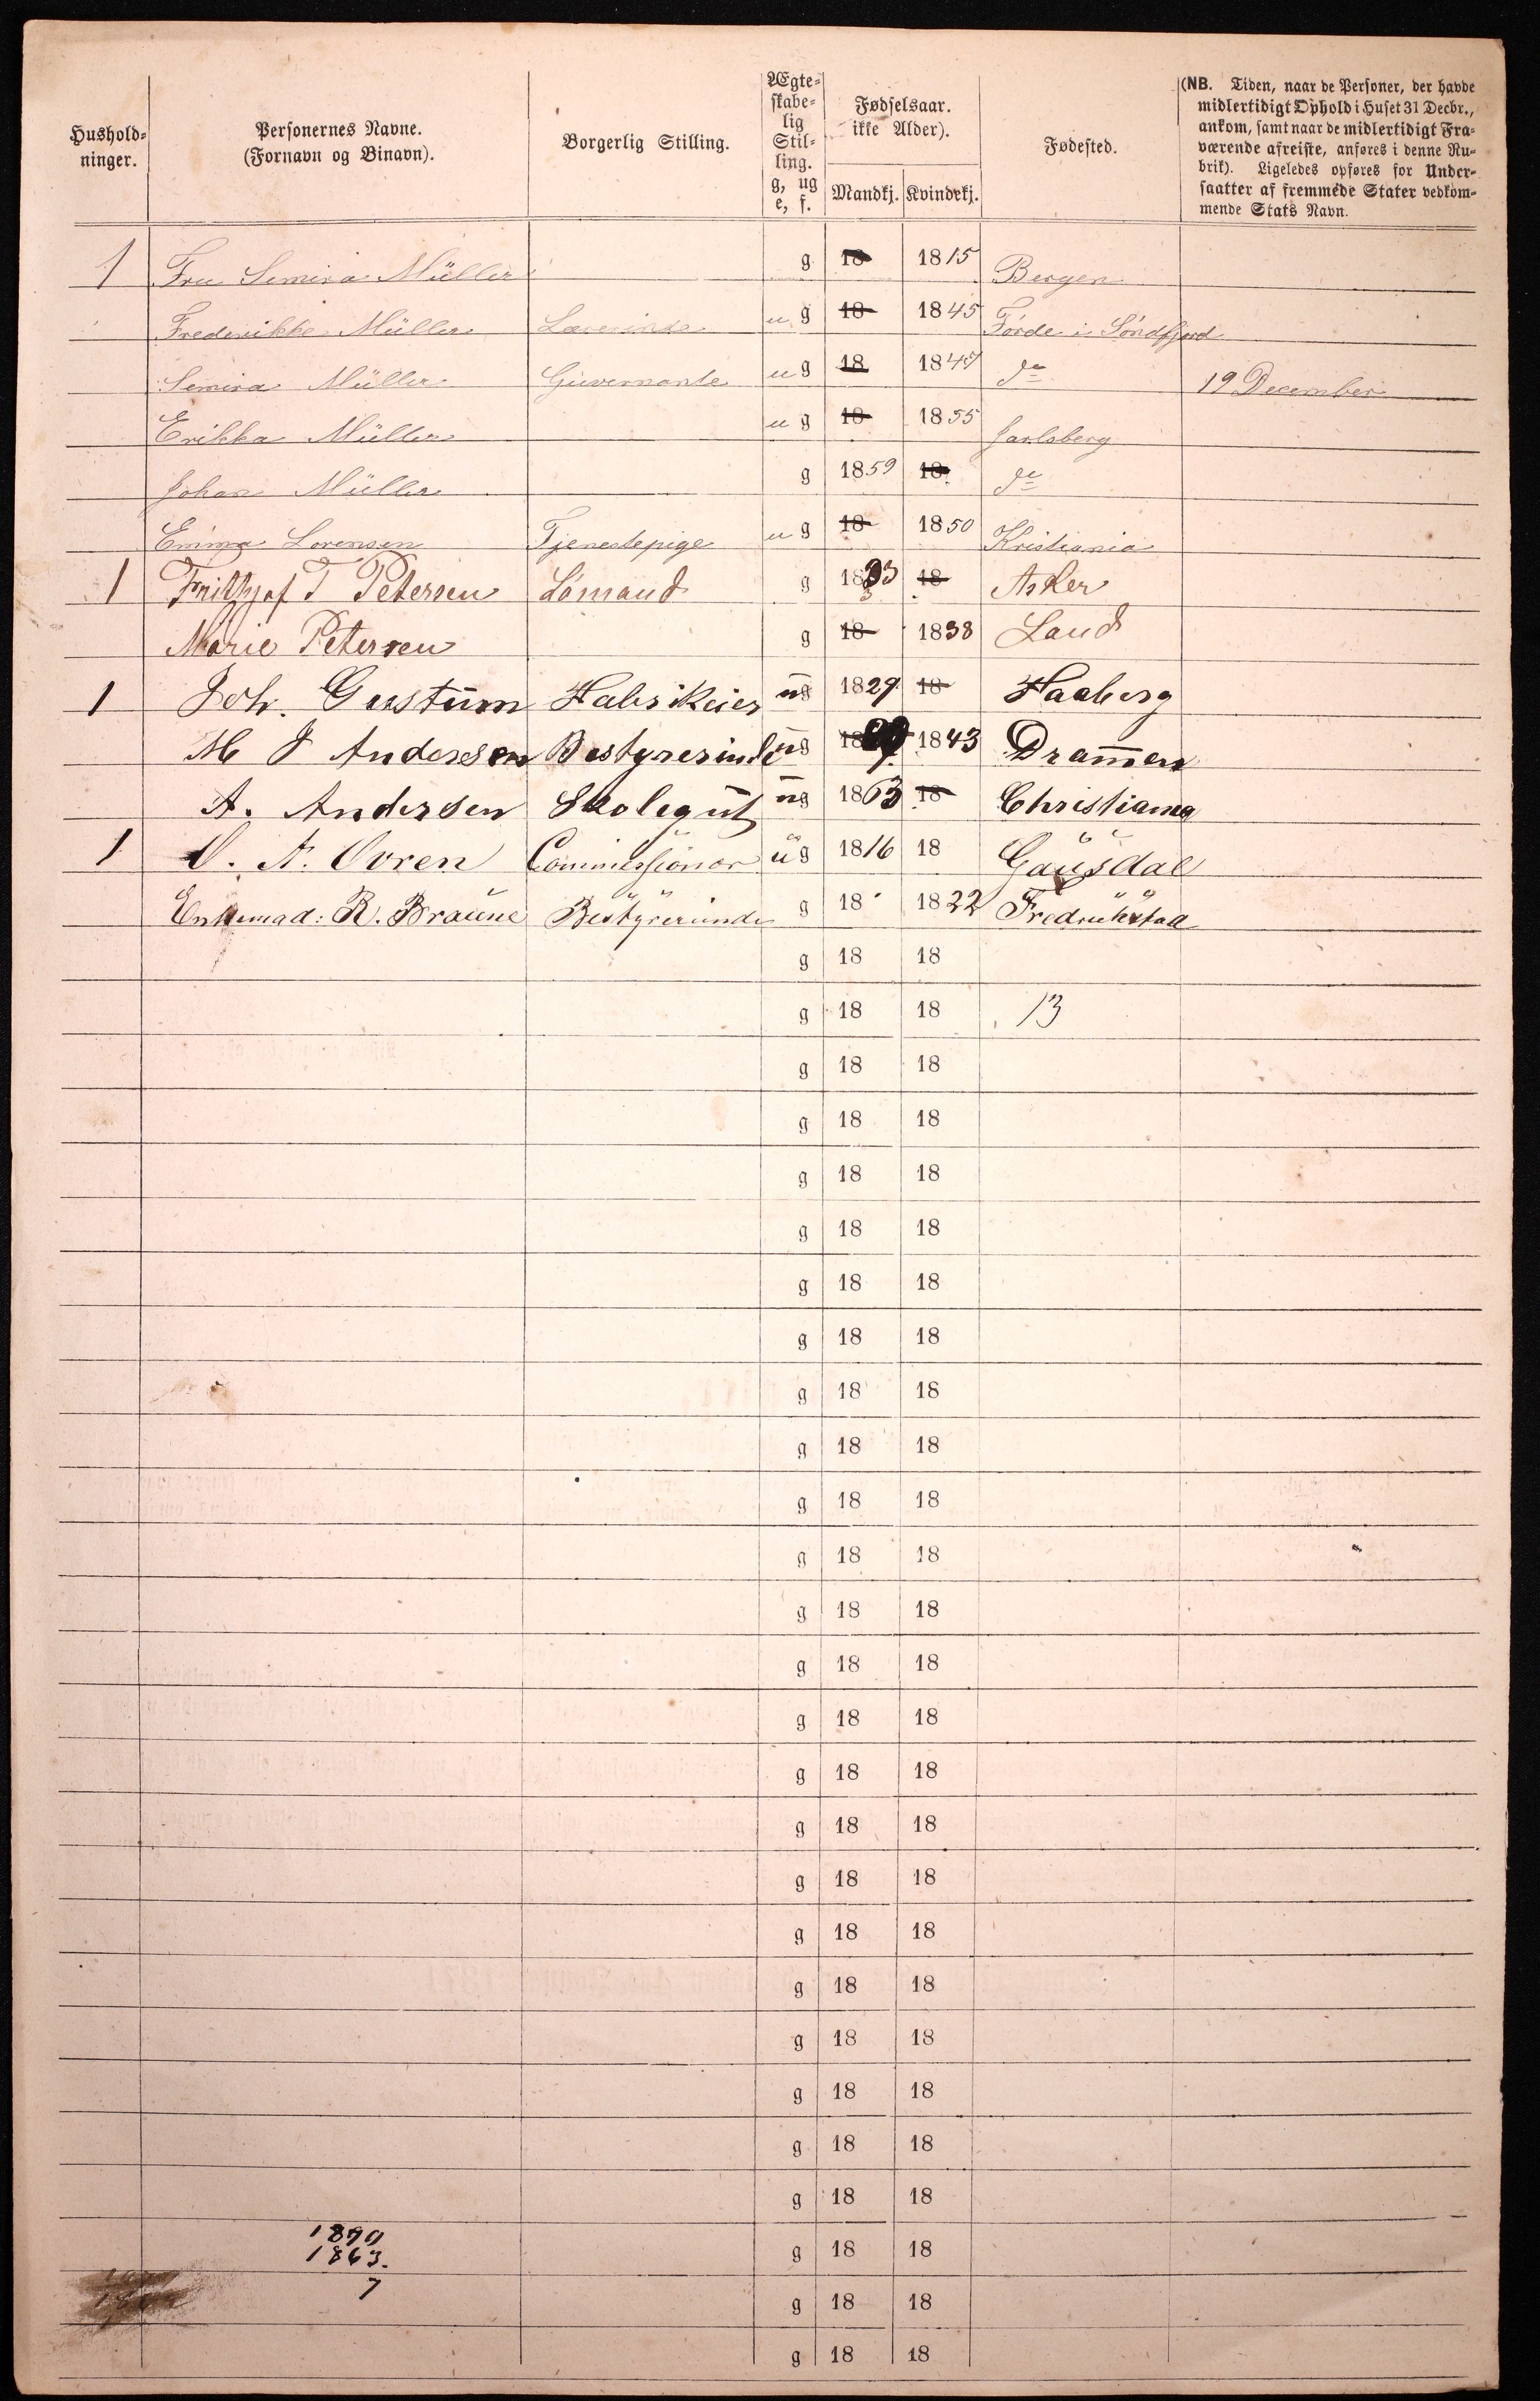 Hushold-
ninger.
Personernes Navne.
(Fornavn og Binavn).
Borgerlig Stilling.
Ægte-
skabe-
lig
Stil-
ling.
g, ug
e, f.
Fødselsaar.
ikke Alder).
Mandkj. Kvindekj.
Fødested.
(NB. Tiden, naar de Personer, der havde
midlertidigt Ophold i Huset 31 Decbr.,
ankom, samt naar de midlertidigt Fra-
værende afreiste, anføres i denne Ru-
brik). Ligeledes opføres for Under-
saatter af fremmede Stater vedkom-
mende Stats Navn.
1 Fru Semira Müller g 18 1815 Bergen
Frederikke Müller Lærerinde u g 18 1845 Førde i Söndfjord
Semira Müller Guvernante u g 18 1847 do 19 December
Erikka Müller u g 18 1855 Jarlsberg
Johan Müller g 1859 18 do
Emma Lorensen Tjenestepige u g 18 1850 Kristiania
1 Frithjof T Petersen Lömand g 1833 18 Asker
Marie Petersen g 18 1838 Land
1 Joh. Gustum Fabrikeier ug 1829 18 Faaberg
M J Anderssen Bestyrerinde ug 18 1843 Dramen
A. Andersen Skolegut ug 1863 18 Christiania
1 O. A. Ovren Commissionær ug 1816 18 Gausdal
Enkemad: R. Braune Bestyrerinde g 18 1822 Fredrikstad
g 18 18
g 18 18 13
g 18 18
g 18 18
g 18 18
g 18 18
g 18 18
g 18 18
g 18 18
g 18 18
g 18 18
g 18 18
g 18 18
g 18 18
g 18 18
g 18 18
g 18 18
g 18 18
g 18 18
g 18 18
g 18 18
g 18 18
g 18 18
g 18 18
1870
1863.
g 18 18
7
g 18 18
g 18 18